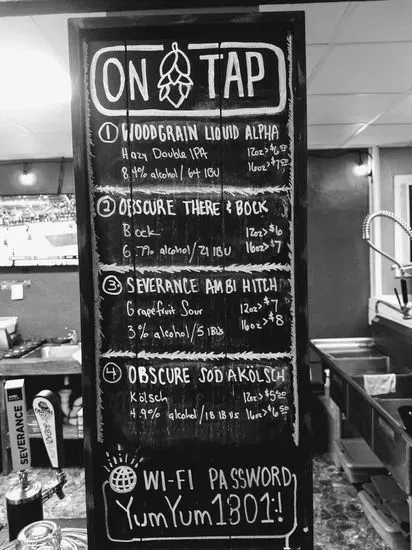 ON TAP
1 WOODGRAIN LIQUID ALPHA
Hazy Double IPA 12oz > $6
8.4% alcohol / 64 IBU 16oz > $7
2 OBSCURE THERE & BOCK
Bock 12oz > $6
6.7% alcohol / 21 IBU 16oz > $7
3 SEVERANCE AMBI HITCH
Grapefruit Sour 12oz > $7
3% alcohol / 5 IBUs 16oz > $8
4 OBSCURE SODA KÖLSCH
Kölsch 12oz > $5.50
4.9% alcohol / 18 IBUs 16oz > $6.50
WI-FI PASSWORD
YumYum1801!
SEVERANCE